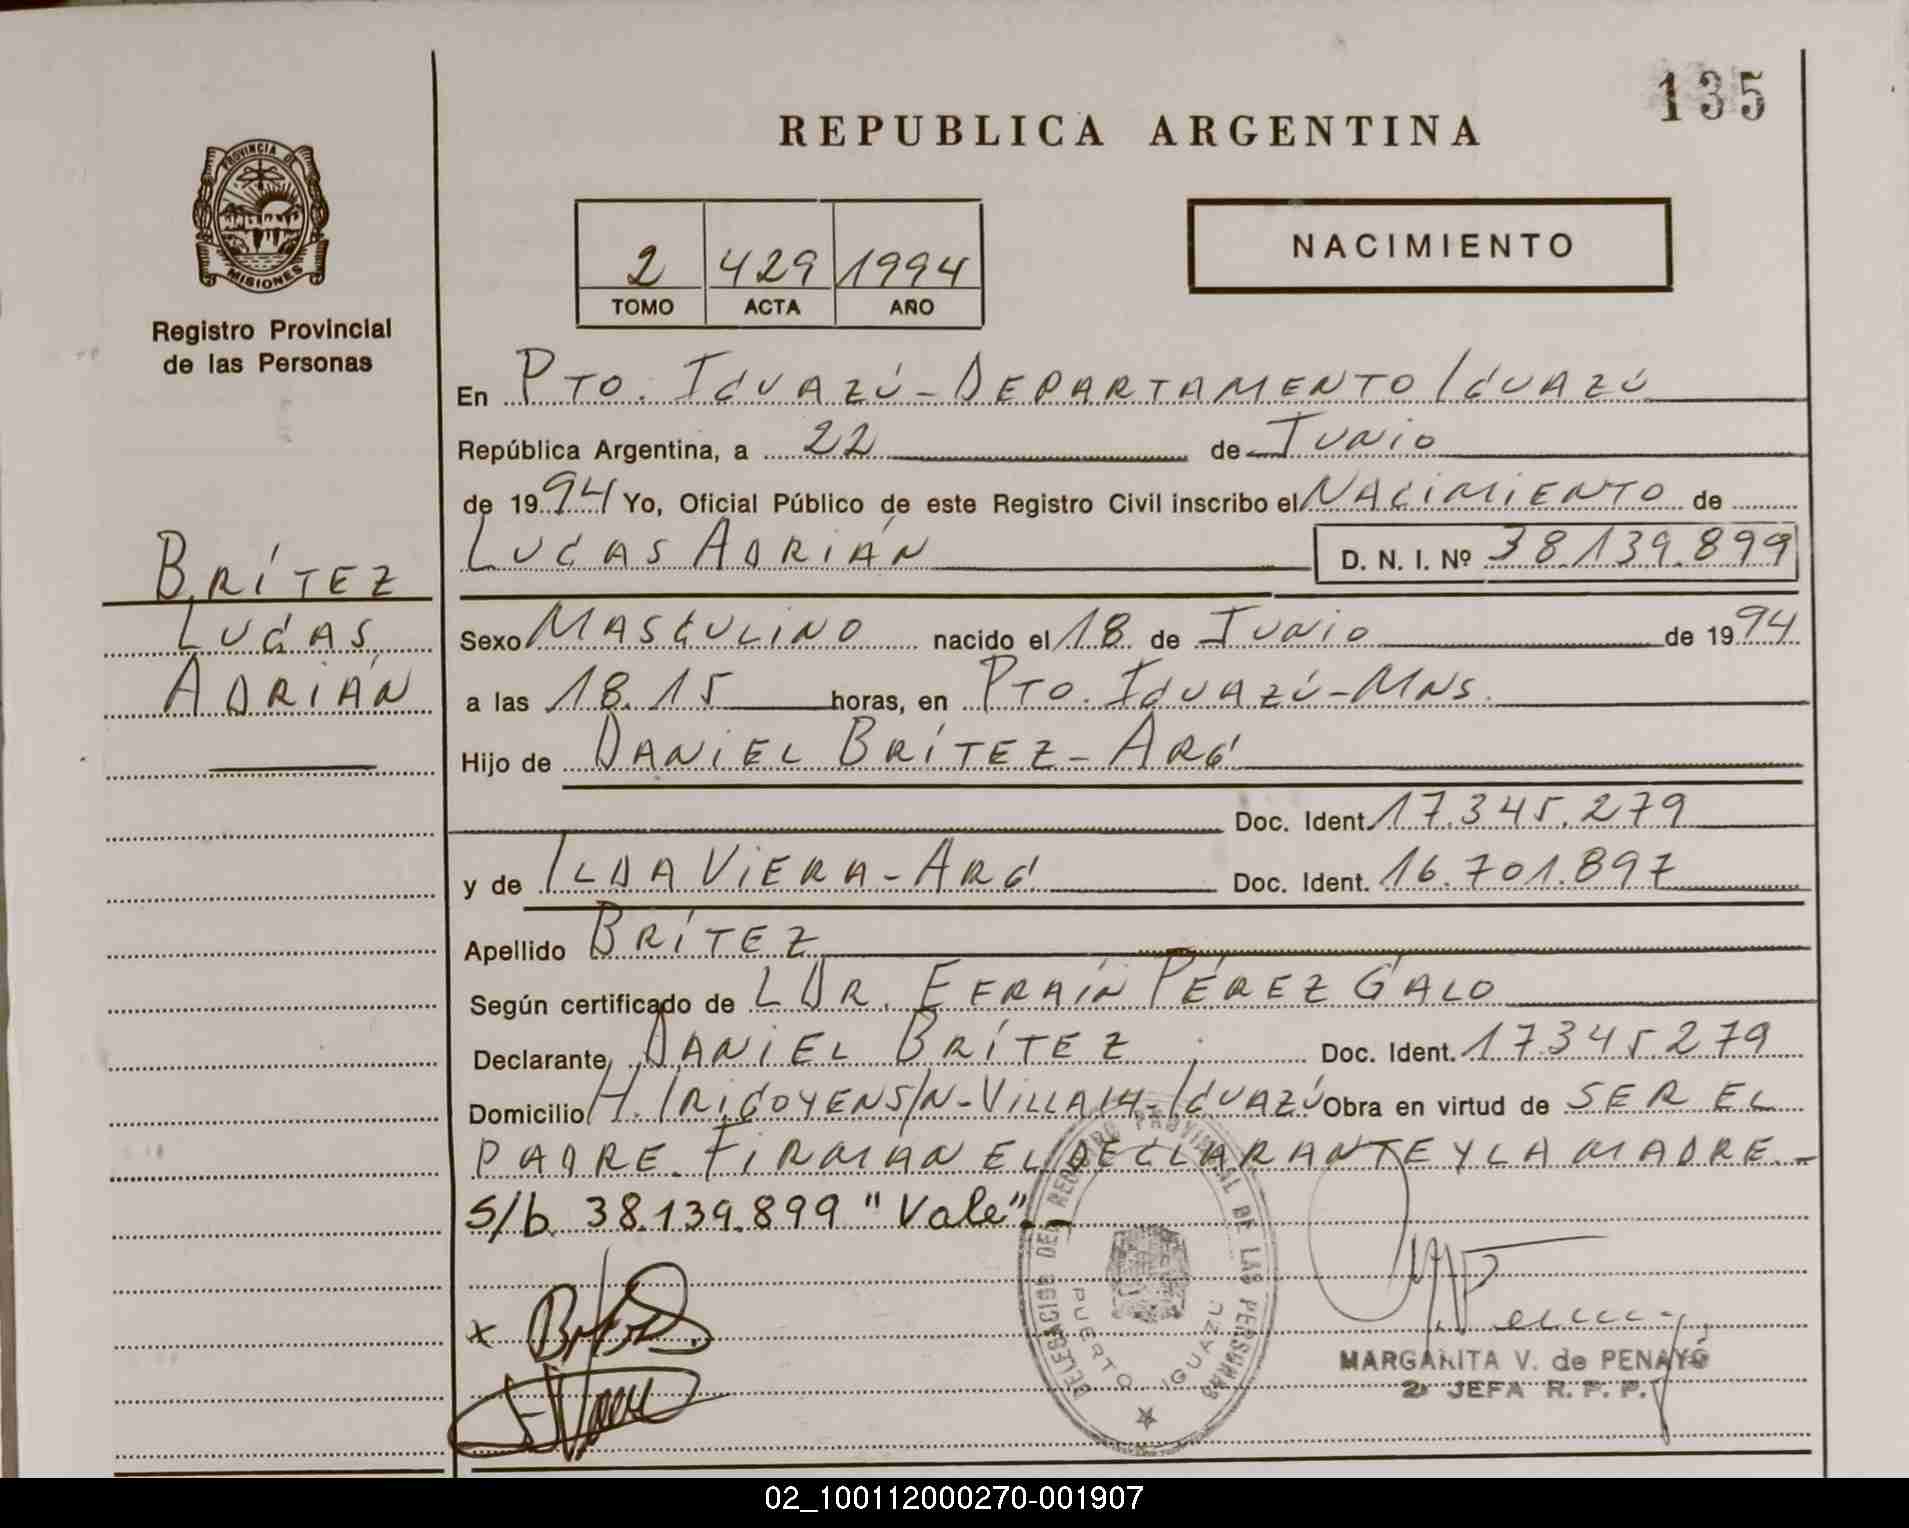 135
REPUBLICA ARGENTINA
PROVINCIA DE
MISIONES
Registro Provincial
de las Personas
2 429 1994
TOMO ACTA AÑO
NACIMIENTO
En PTO. IGUAZÚ - DEPARTAMENTO IGUAZÚ
República Argentina, a 22 de JUNIO
de 1994 Yo, Oficial Público de este Registro Civil inscribo el NACIMIENTO de
LUCAS ADRIÁN D. N. I. Nº 38.139.899
BRÍTEZ
LUCAS
ADRIÁN
Sexo MASCULINO nacido el 18 de JUNIO de 1994
a las 18.15 horas, en PTO. IGUAZÚ - MNS.
Hijo de DANIEL BRÍTEZ - ARG
Doc. Ident. 17.345.279
y de ILDA VIERA - ARG Doc. Ident. 16.701.897
Apellido BRÍTEZ
Según certificado de L DR. EFRAÍN PÉREZ GALO
Declarante DANIEL BRÍTEZ Doc. Ident. 17.345.279
Domicilio H. IRIGOYEN S/N - VILLA 14 - IGUAZÚ Obra en virtud de SER EL
PADRE. FIRMAN EL DECLARANTE Y LA MADRE. -
S/b 38.139.899 "Vale". -
DELEGACION DEL REGISTRO PROVINCIAL DE LAS PERSONAS
PUERTO IGUAZU
x
MARGARITA V. de PENAYO
2ª JEFA R. P. P.
02_100112000270-001907